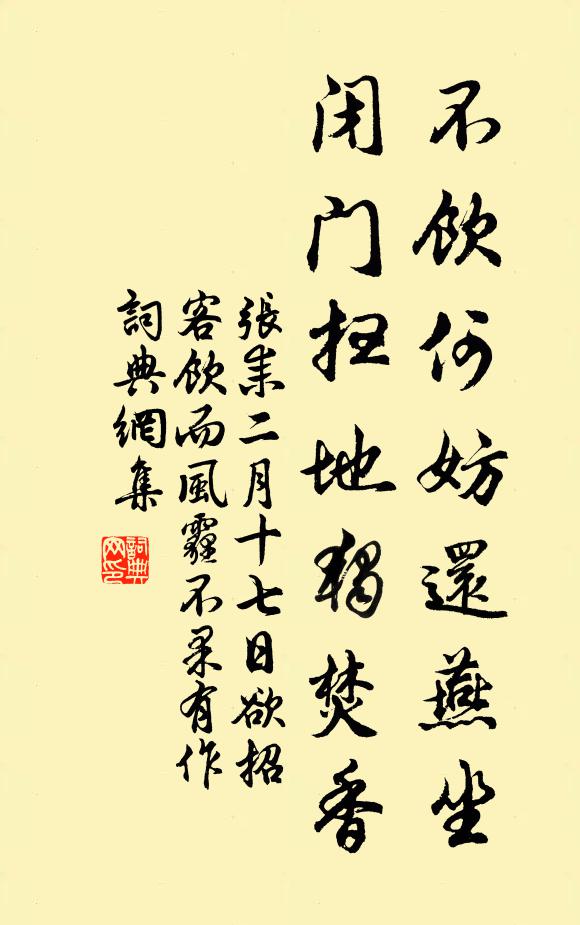 不飲何妨還燕坐
闭门扫地獨焚香
張耒二月十七日欲招
客飲而風霾不果有作
詞典網集
詞典
网印